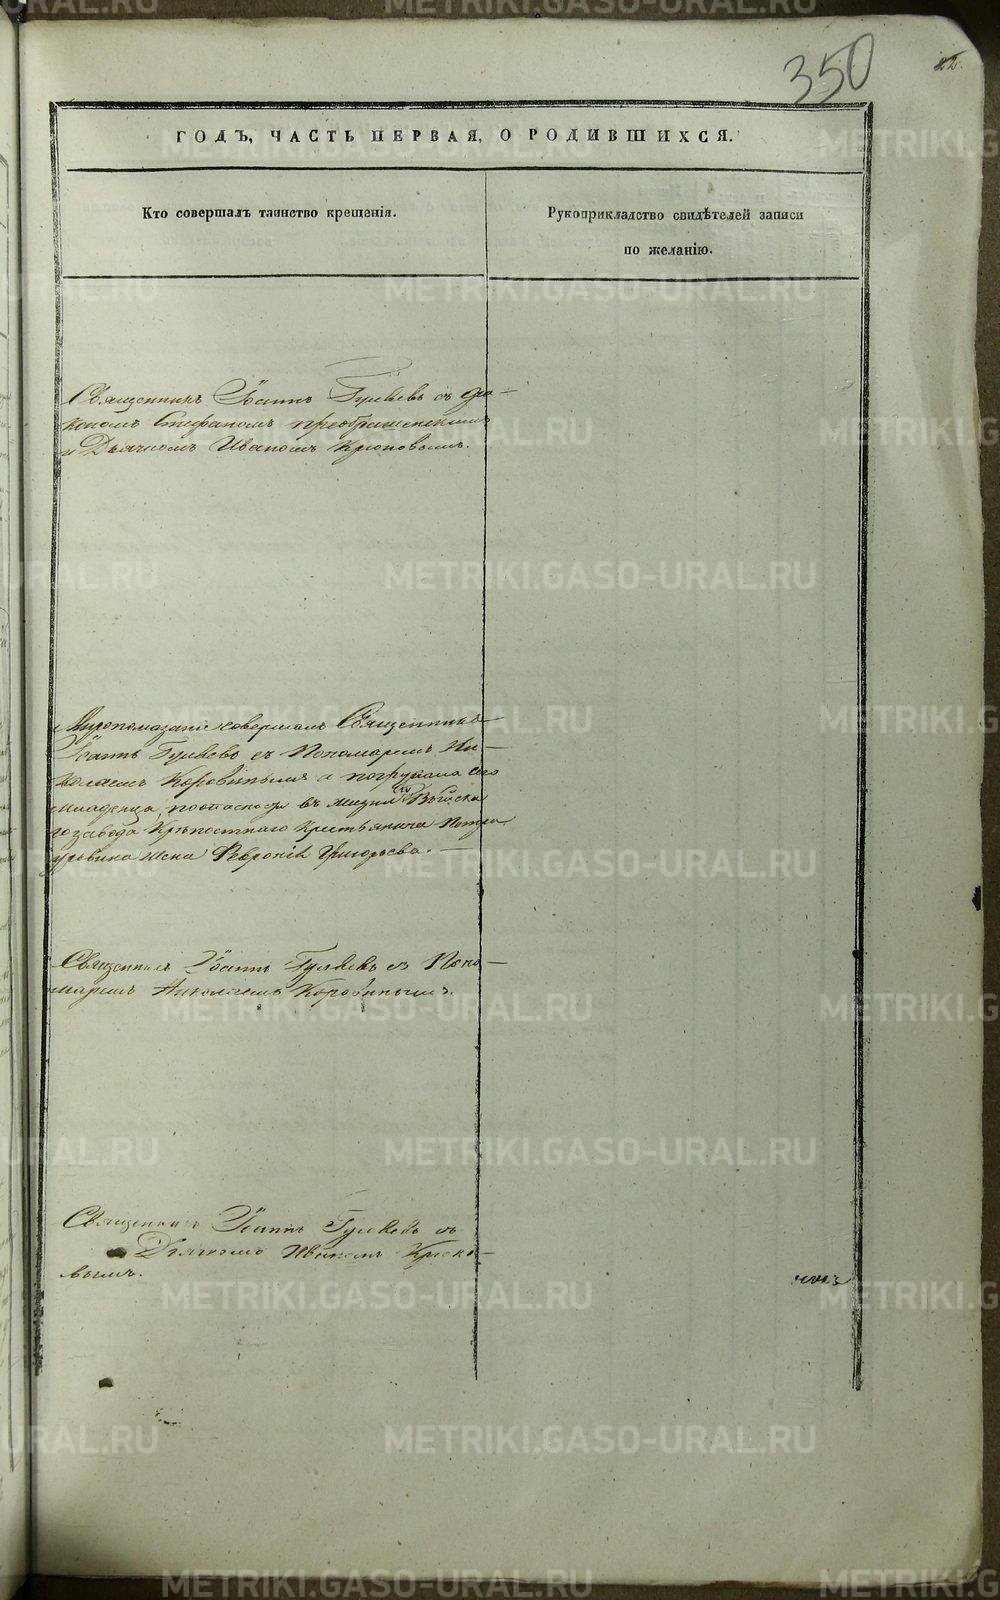 350
22.
ГОДЪ, ЧАСТЬ ПЕРВАЯ, О РОДИВШИХСЯ.
Кто совершалъ таинство крещенія.
Рукоприкладство свидѣтелей записи
по желанію.
Священникъ Іоаннъ Гуляевъ съ Діа-
кономъ Стефаномъ Преображенскимъ
и Дьячкомъ Иваномъ Крюковымъ.
Миропомазаніе совершалъ Священникъ
Іоаннъ Гуляевъ съ Пономаремъ Ни-
колаемъ Коровинымъ а погружала сего
младенца по опасности въ жизни Выйска
го завода Крѣпостнаго Крестьянина Петра
жена Февронія Григорьева.
Священникъ Іоаннъ Гуляевъ съ Поно-
маремъ Николаемъ Коровинымъ.
Священникъ Іоаннъ Гуляевъ съ
Дьячкомъ Иваномъ Крюко-
вымъ.
METRIKI.GASO-URAL.RU